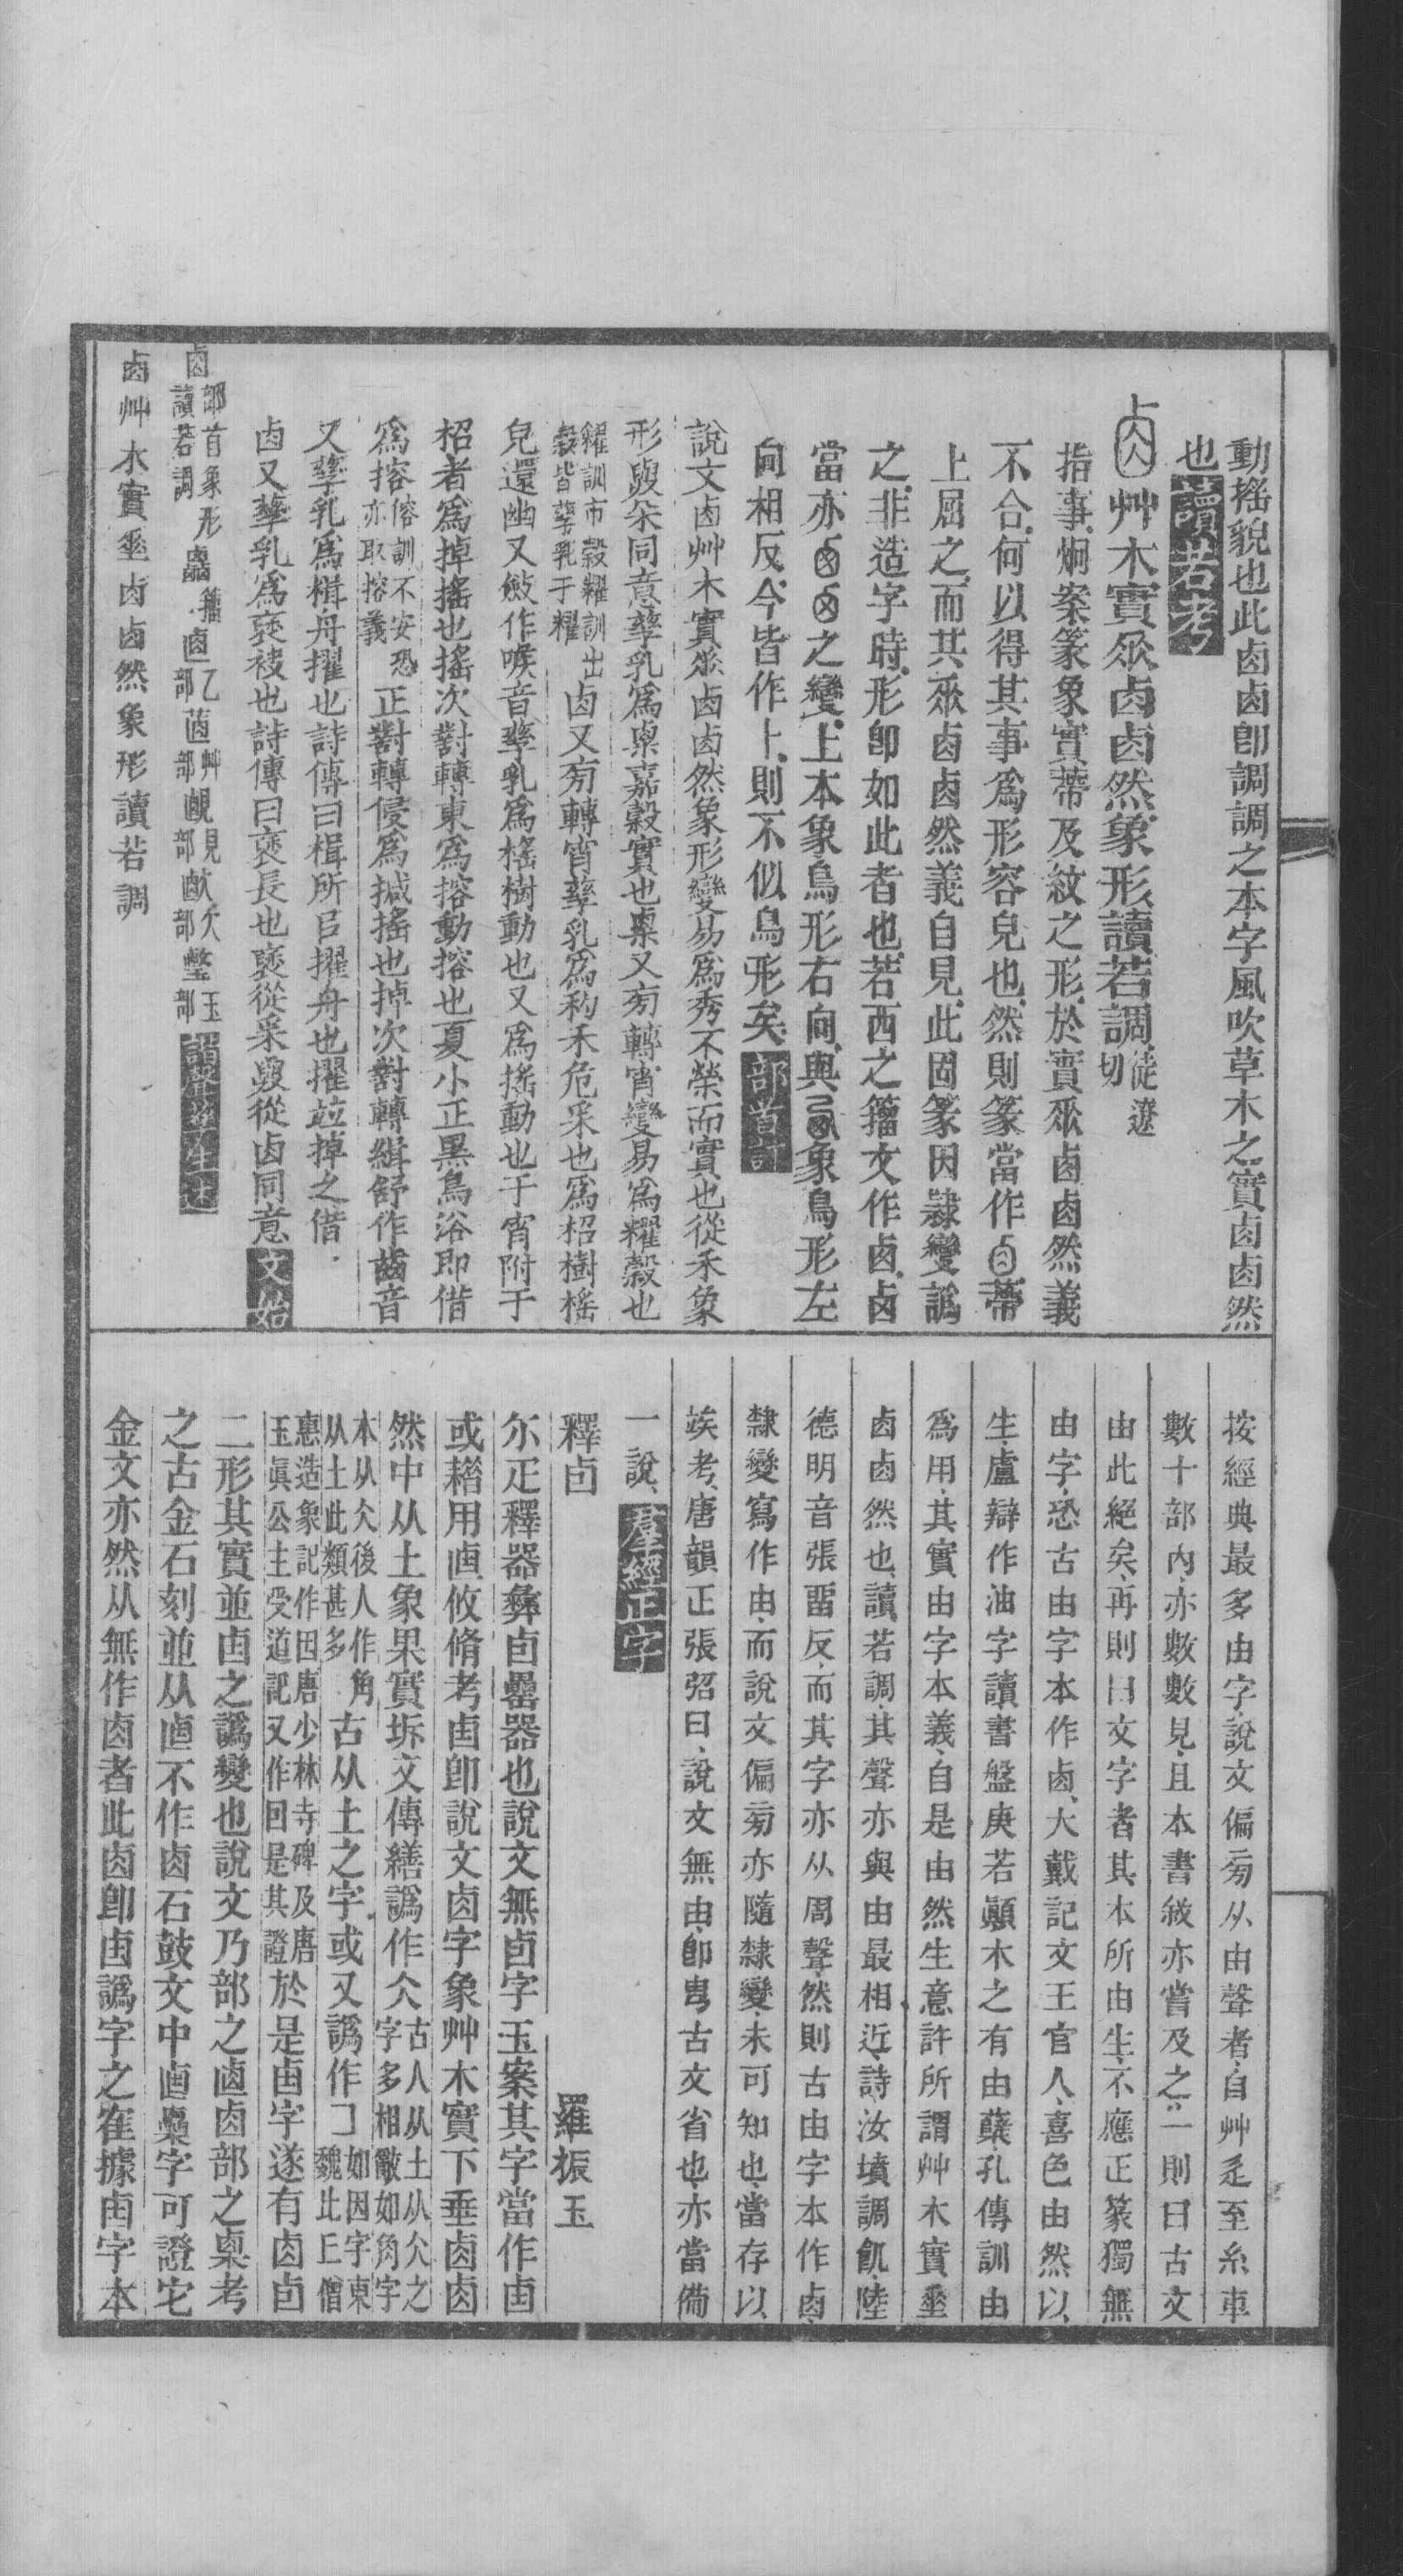 動搖貌也此卤卤卽調調之本字風吹草木之實卤卤然
也讀若考
艸木實𠂹卤卤然象形讀若調徒遼切
指事炯案篆象實蒂及紋之形於實𠂹卤卤然義
不合何以得其事爲形容皃也然則篆當作蒂
上屈之而其𠂹卤卤然義自見此固篆因隸變譌
之非造字時形卽如此者也若西之籀文作卤卤
當亦之變上本象鳥形右向與象鳥形左
向相反今皆作⺊則不似鳥形矣部首訂
說文卤艸木實𠂹卤卤然象形變易爲秀不榮而實也從禾象
形與朵同意孳乳爲㮚嘉穀實也㮚又旁轉宵變易爲糶穀也
糴訓市穀糶訓出穀皆孳乳于糶卤又旁轉宵孳乳爲秒禾危采也爲柖樹榣
皃還幽又斂作喉音孳乳爲榣樹動也又爲搖動也于宵附于
柖者爲掉搖也搖次對轉東爲搈動搈也夏小正黑鳥浴即借
爲搈傛訓不安恐亦取搈義正對轉侵爲揻搖也掉次對轉緝舒作齒音
又孳乳爲楫舟擢也詩傳曰楫所㠯擢舟也擢竝掉之借
卤又孳乳爲褎袂也詩傳曰褎長也褎從采與從卤同意文始
卤部首象形讀若調籀𠧴乙部蓾艸部覰見部㰹欠部瑬玉部諧聲孳生述
卤艸木實𠂹卤卤然象形讀若調
按經典最多由字說文偏旁从由聲者自艸辵至糸車
數十部內亦數數見且本書敘亦嘗及之一則曰古文
由此絕矣再則曰文字者其本所由生不應正篆獨無
由字恐古由字本作卤大戴記文王官人喜色由然以
生盧辯作油字讀書盤庚若顚木之有由蘖孔傳訓由
爲用其實由字本義自是由然生意許所謂艸木實𠂹
卤卤然也讀若調其聲亦與由最相近詩汝墳調飢陸
德明音張畱反而其字亦从周聲然則古由字本作卤
隸變寫作由而說文偏旁亦隨隸變未可知也當存以
竢考唐韻正張弨曰說文無由卽㽕古文省也亦當備
一說羣經正字
釋卣
羅振玉
尒疋釋器彝卣罍器也說文無卣字玉案其字當作𠧪
或藉用逌攸脩考𠧪卽說文卤字象艸木實下垂卤卤
然中从土象果實坼文傳繕譌作仌古人从土从仌之字多相𣀷如角字
本从仌後人作角从土此類甚多古从土之字或又譌作𠃍如因字東魏比丘僧
惠造象記作因唐少林寺碑及唐玉眞公主受道記又作回是其證於是𠧪字遂有卤卣
二形其實並𠧪之譌變也說文乃部之逌卤部之㮚考
之古金石刻並从逌不作卤石鼓文中逌㮚字可證它
金文亦然从無作卤者此卤卽𠧪譌字之隺據𠧪字本